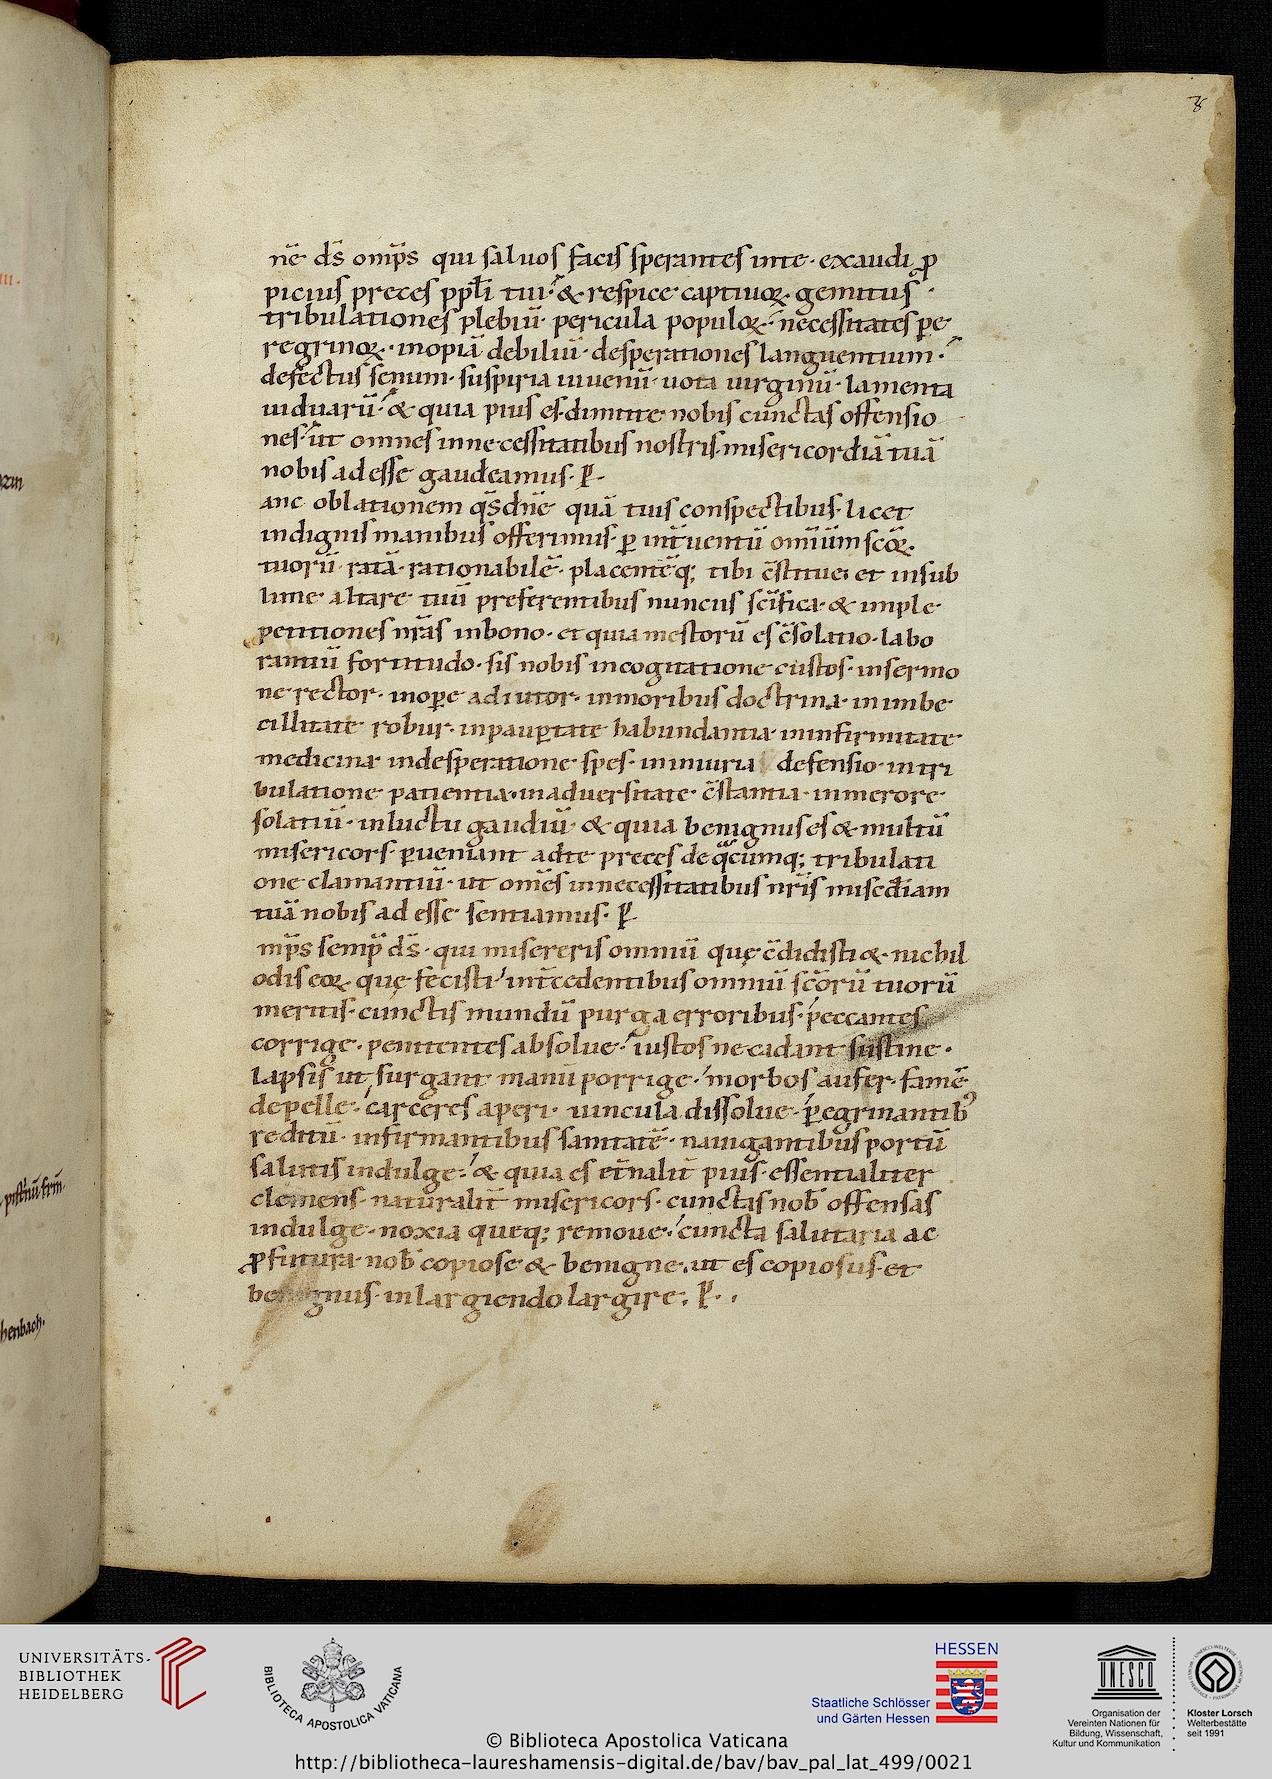 8
nē ds̄ omp̄s qui saluos facis sperantes inte· exaudi ꝓ
picius preces ppl̄i tui· & respice captiuoꝝ gemitus·
tribulationes plebiū· pericula populoꝝ· necessitates ꝑe
regrinoꝝ· inopiā debiliū· desperationes languentium·
defectus senum· suspiria iuuenū· uota uirginū· lamenta
uiduarū· & quia pius es· dimitte nobis cunctas offensio
nes· ut omnes inne cessitatibus nostris misericordiā tuā
nobis ad esse gaudeamus· P̄·
anc oblationem qs̄ dn̄e quā tuis conspectibus· licet
indignis manibus offerimus· ꝑ int̄uentū omniūm sc̄oꝝ·
tuorū ratā· rationabilē· placentēq; tibi c̄stitue· et insub
lime altare tuū preferentibus nuncus sc̄ifica· & imple·
petitiones nr̄as inbono· et quia mestorū es c̄solatio· labo
rantiū fortitudo· sis nobis incogitatione custos· insermo
ne rector· inoꝑe adiutor· inmoribus doctrina· in imbe·
cillitate robur· inpauꝑtate habundantia· ininfirmitate·
medicina· indesperatione spes· in iniuria defensio· in tri
bulatione patientia· inaduersitate c̄stantia· inmerore·
solatiū· inluctu gaudiū· & quia benignus es & multū
misericors ꝑueniant adte preces de qͣcumq; tribulati
one clamantiū· ut om̄es innecessitatibus nr̄is misēdiam
tuā nobis ad esse sentiamus· P̄
mp̄s semp̄ ds̄· qui misereris omniū quę c̄didisti & nichil
odis eoꝝ quę fecisti· int̄cedentibus omniū sc̄orū tuorū
meritis· cunctis mundū purga erroribus· peccantes
corrige· penitentes absolue· iustos ne cadant sustine·
lapsis ut surgant manū porrige· morbos aufer· famē
depelle· carceres aperi· uincula dissolue· ꝑegrinantibꝰ
reditū· infirmantibus sanitatē· nauigantibus portū
salutis indulge· & quia es et̄nalit̄ pius· essentialiter
clemens· naturalit̄ misericors· cunctas nob̄ offensas
indulge· noxia queq; remoue· cuncta salutaria ac
ꝓfutura nob̄ copiose & benigne· ut es copiosus· et
benignus· inlargiendo largire· P̄··
henbach·
UNIVERSITÄTS-
BIBLIOTHEK
HEIDELBERG
BIBLIOTECA APOSTOLICA VATICANA
HESSEN
Staatliche Schlösser
und Gärten Hessen
UNESCO
Organisation der
Vereinten Nationen für
Bildung, Wissenschaft,
Kultur und Kommunikation
Kloster Lorsch
Welterbestätte
seit 1991
© Biblioteca Apostolica Vaticana
http://bibliotheca-laureshamensis-digital.de/bav/bav_pal_lat_499/0021